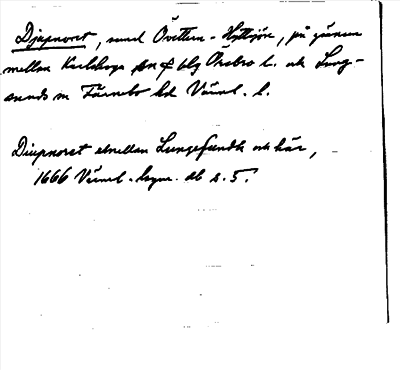 Djupnoret, sund Övittern - Hyttsjön, på gränsen
mellan Karlskoga sn o blg Örebro l. och Lung-
sunds sn Färnebo hd Värml. l.
Diupnoret emellan Lungesundh och här,
1666 Värml. lagm. db s. 5.